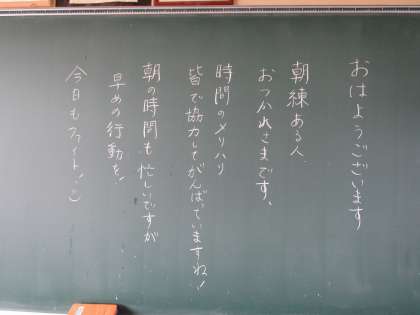 おはようございます
朝練ある人
おつかれさまです、
時間のメリハリ
皆で協力してがんばっていますね!
朝の時間も忙しいですが
早めの行動を!
今日もファイト!